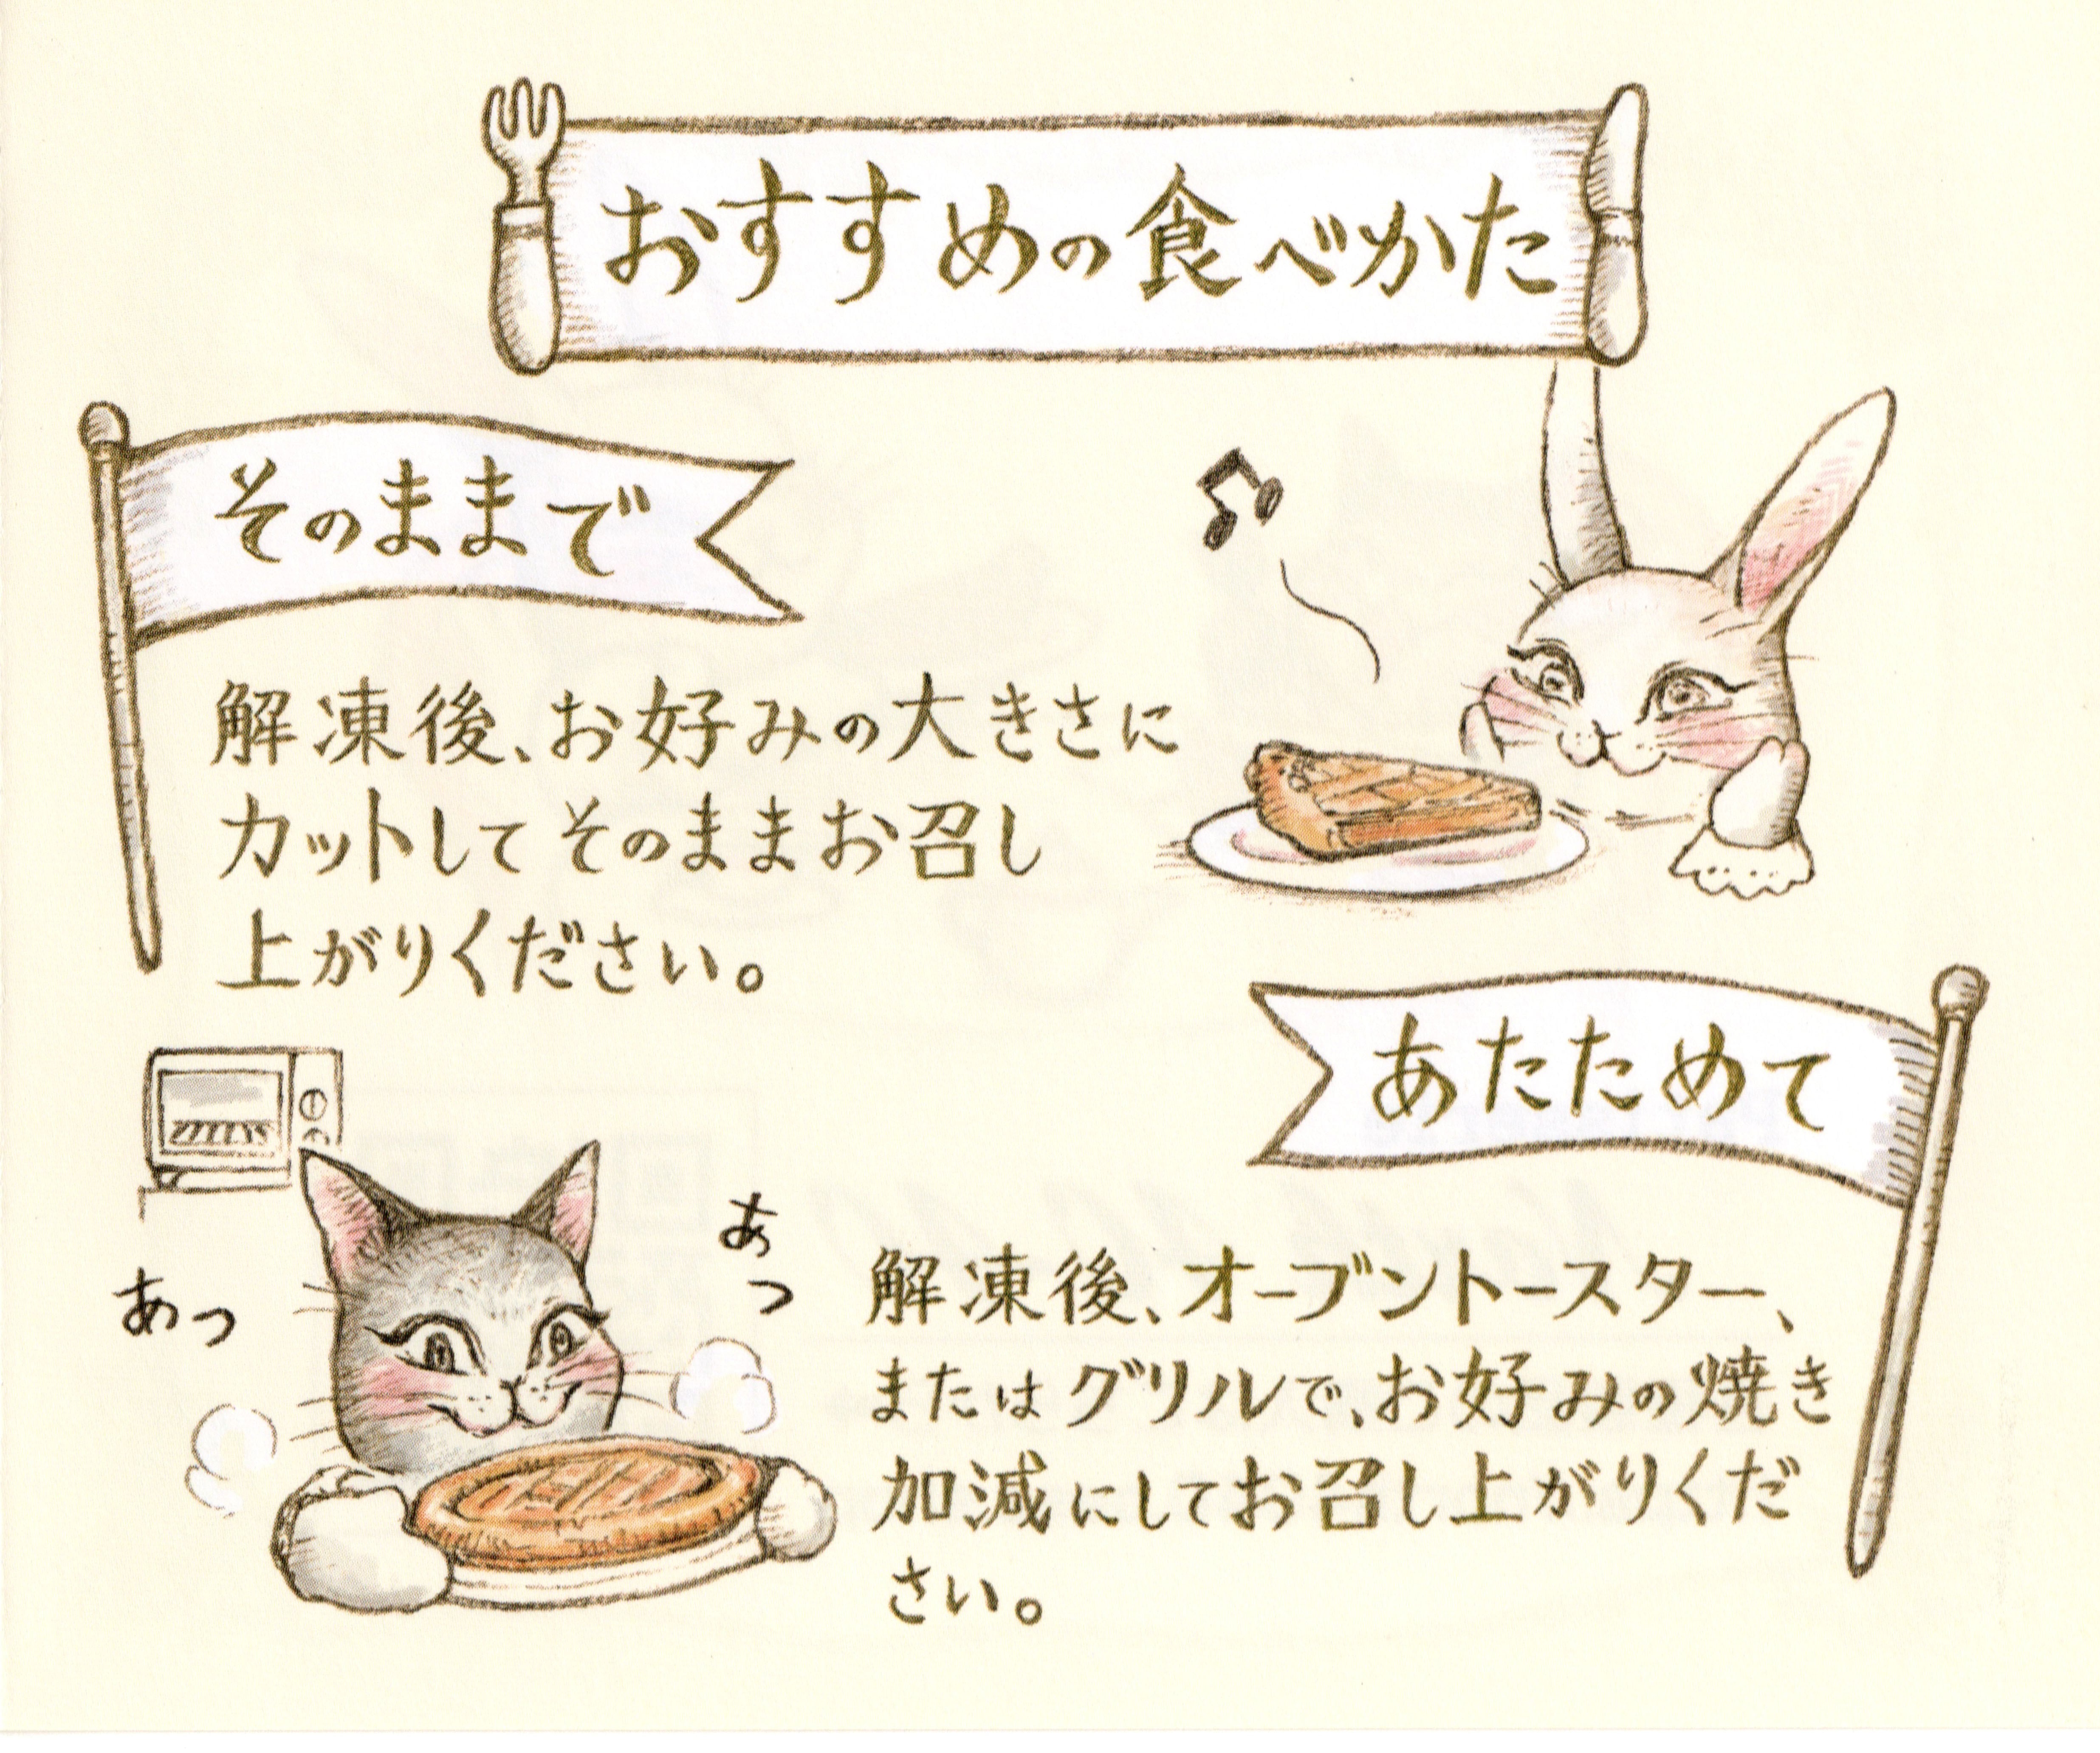 おすすめの食べかた
そのままで
解凍後、お好みの大きさに
カットしてそのままお召し
上がりください。
あたためて
あっ
あっ
解凍後、オーブントースター、
またはグリルで、お好みの焼き
加減にしてお召し上がりくだ
さい。